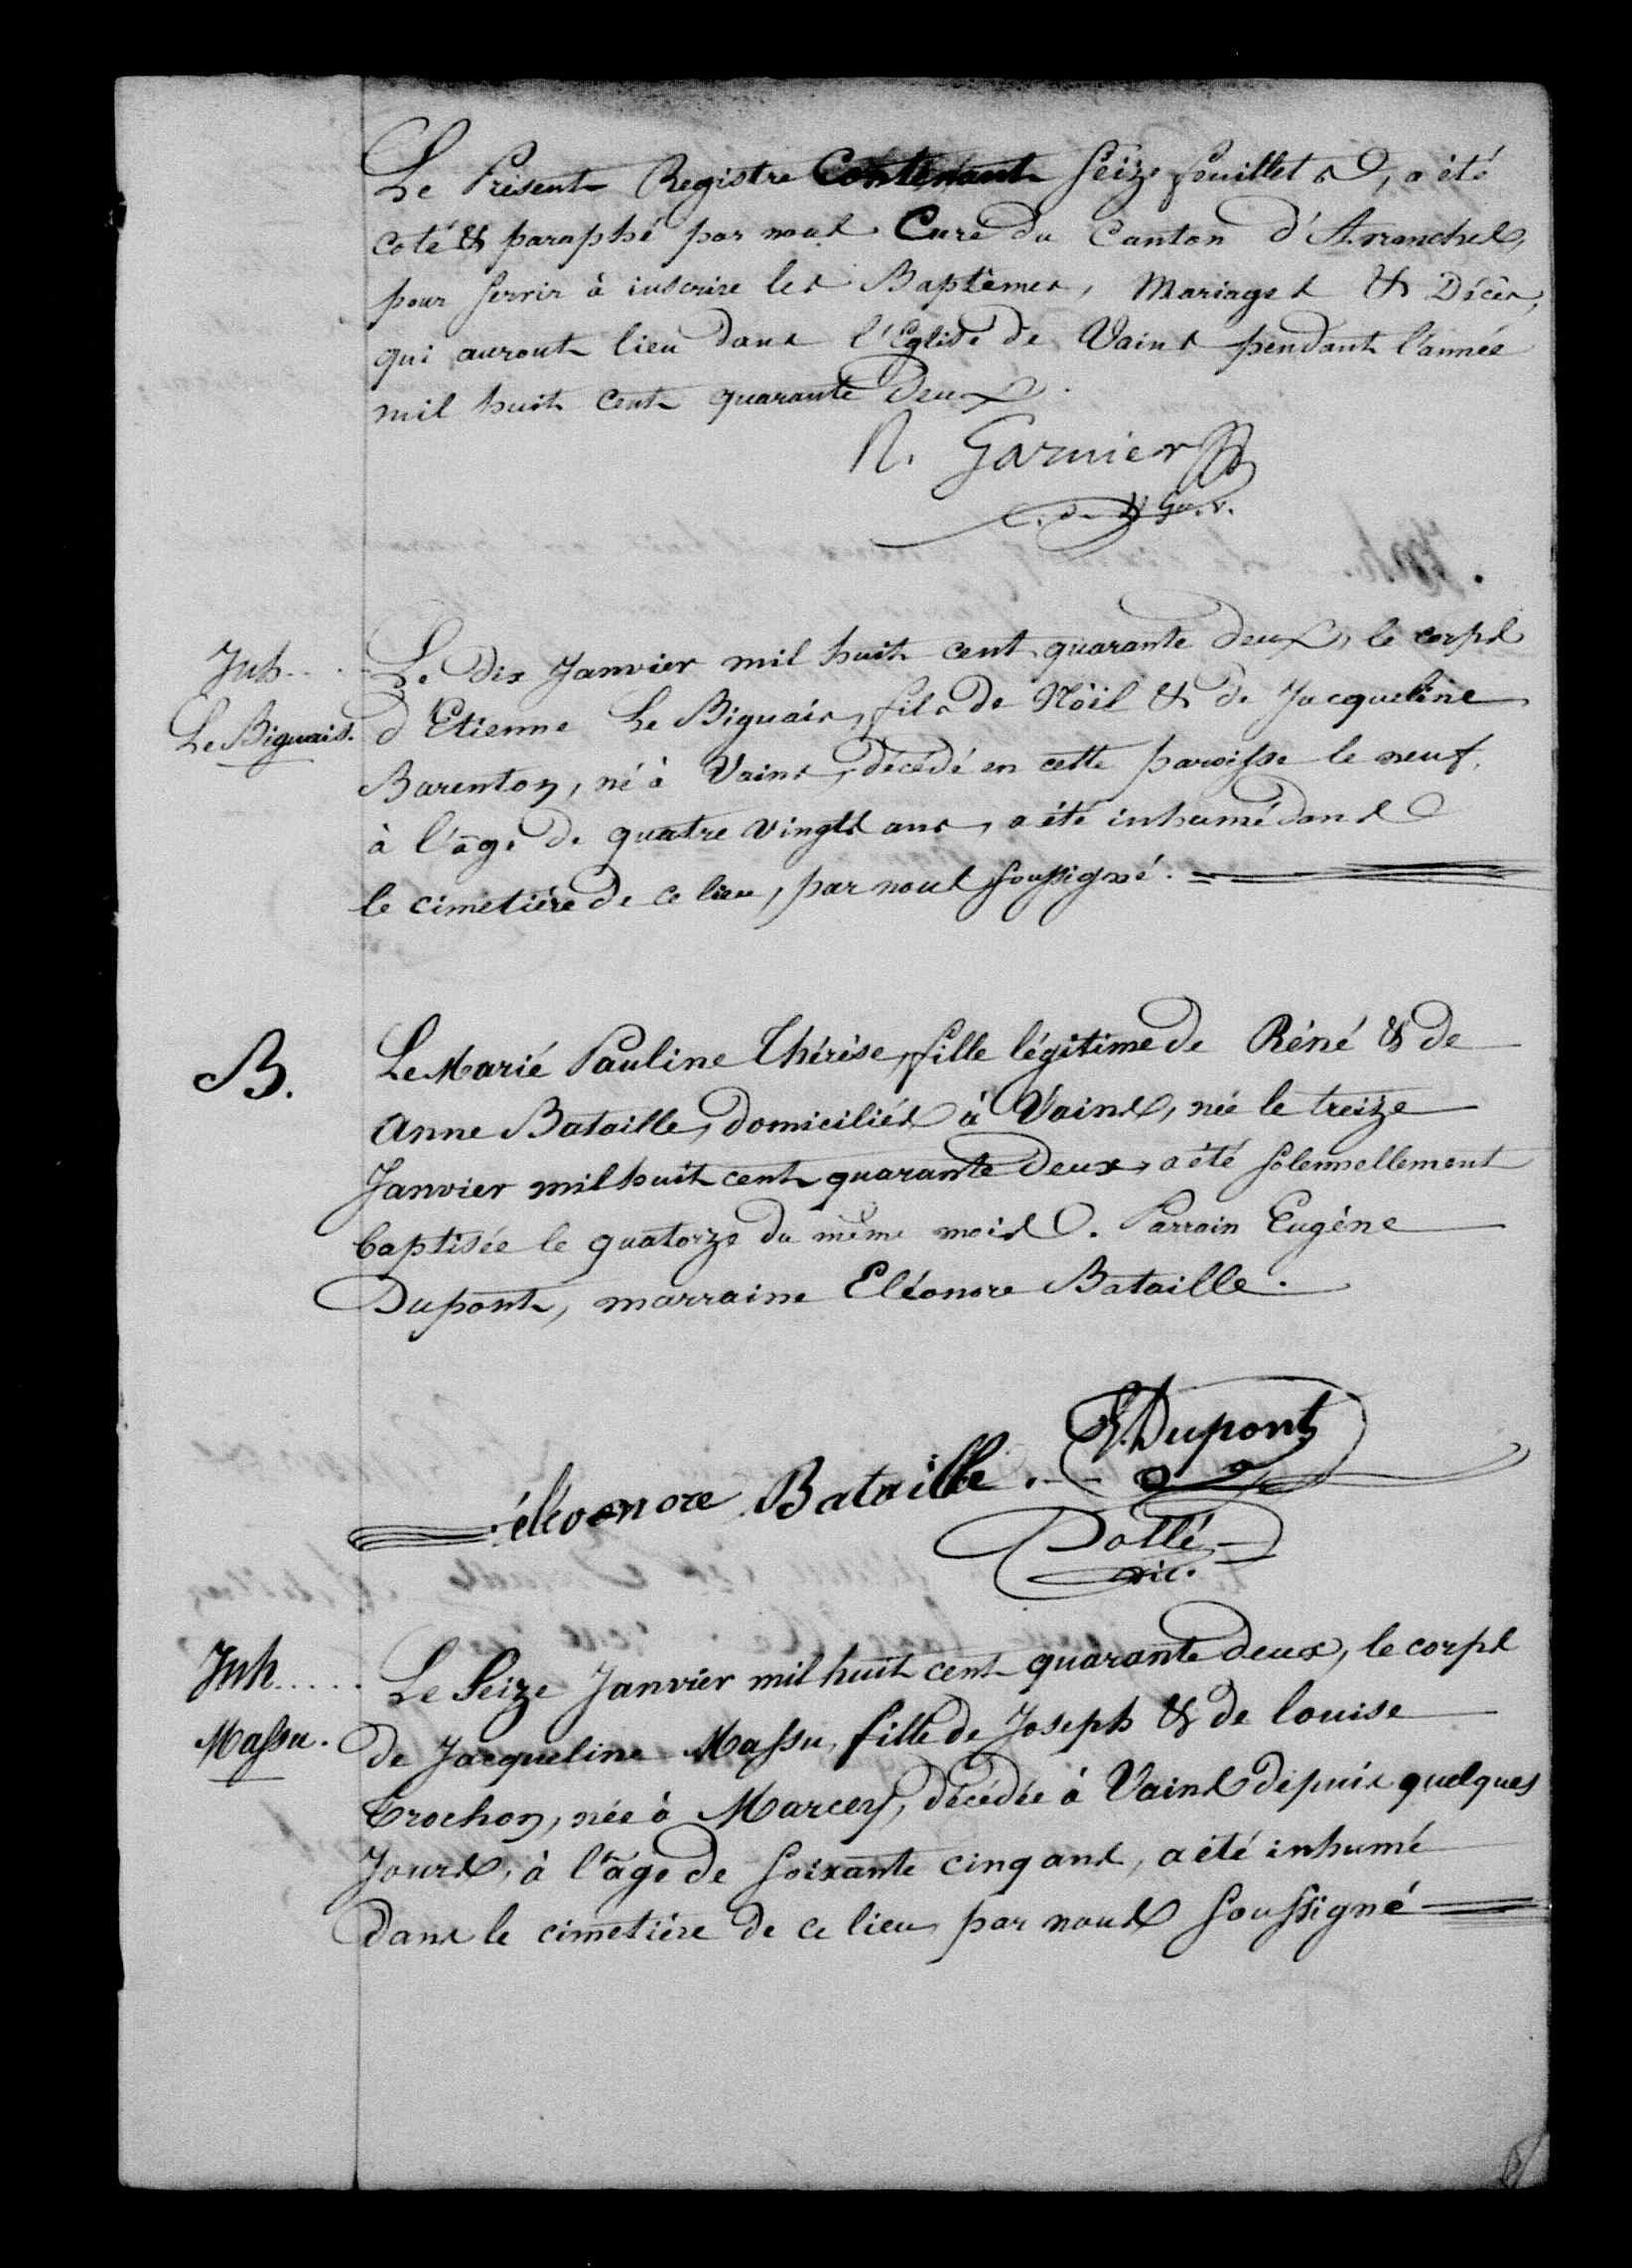 Le Présent Registre Contenant Seize feuillets, a été
coté & paraphé par nous Curé du Canton d'Avranches,
pour servir à inscrire les Baptêmes, Mariages & Décès,
qui auront lieu dans l'Eglise de Vains pendant l'année
mil huit cent quarante deux.
N. Garnier
Inh...
Le Biguais.
Le dix Janvier mil huit cent quarante deux, le corps
d'Etienne Le Biguais, fils de Nöil & de Jacqueline
Barenton, né à Vains, décédé en cette paroisse le neuf,
à l'âge de quatre vingts ans, a été inhumé dans
le cimetière de ce lieu, par nous soussigné.
B.
Le Marié Pauline Thérèse, fille légitime de Réné & de
Anne Bataille, domiciliés à Vains, née le treize
Janvier mil huit cent quarante deux, a été solennellement
baptisée le quatorze du même mois. Parrain Eugène
Dupont, marraine Eléonore Bataille.
E. Dupont
éléonore Bataille.
Dollé
vic.
Inh.....
Massu.
Le Seize Janvier mil huit cent quarante deux, le corps
de Jacqueline Massu, fille de Joseph & de louise
Trochon, née à Marcey, décédée à Vains depuis quelques
Jours, à l'âge de soixante cinq ans, a été inhumé
dans le cimetière de ce lieu par nous soussigné